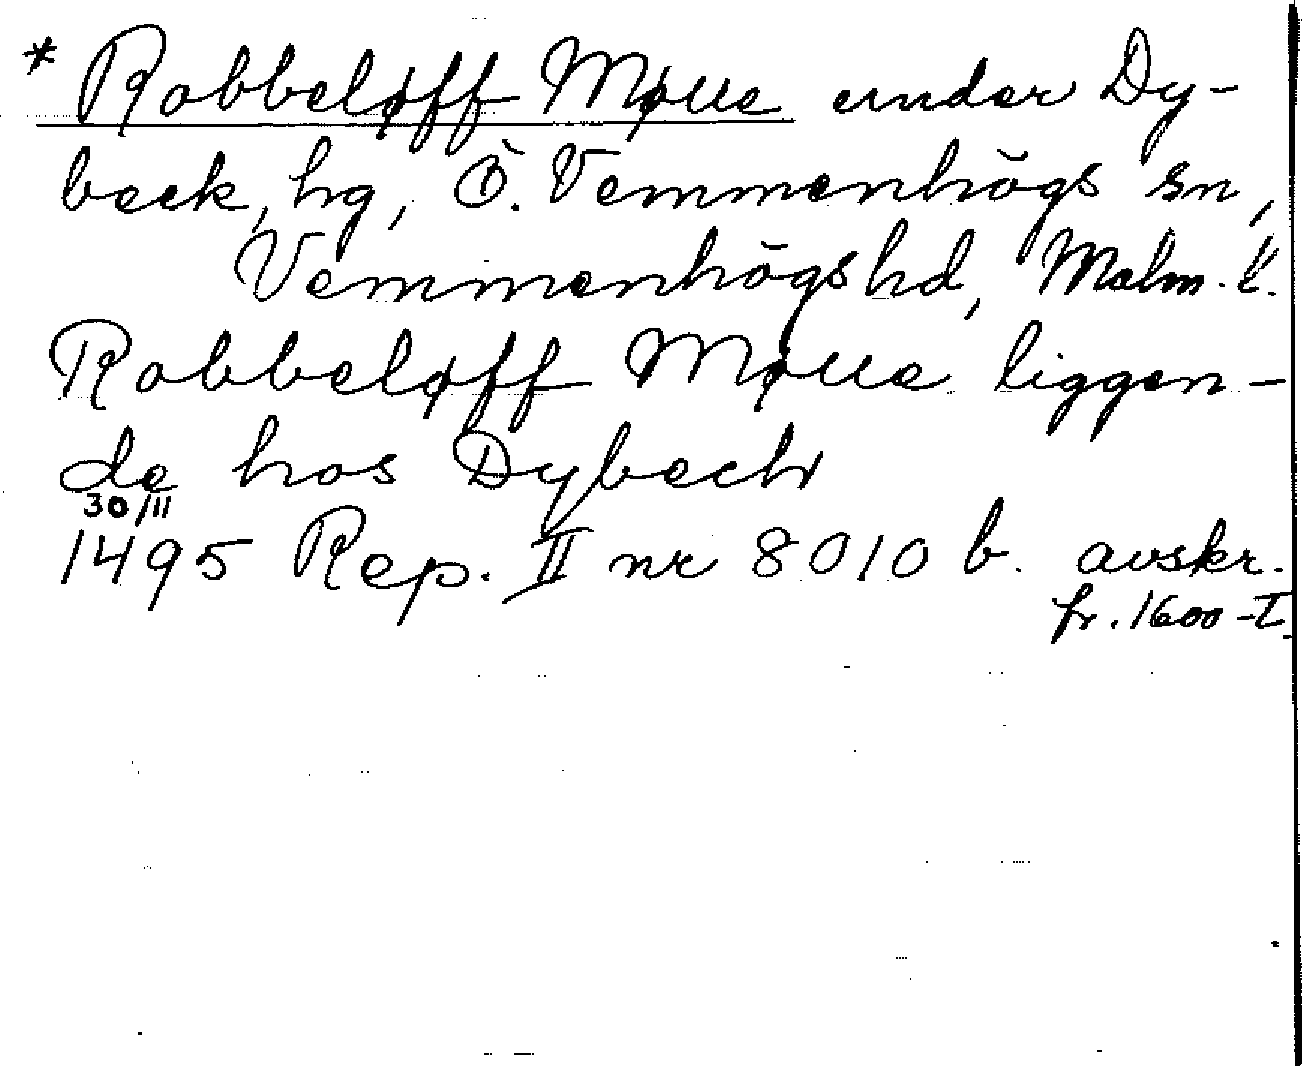 * Robbeløff Mølle under Dy-
beck, hg, Ö. Vemmenhögs sn,
Vemmenhögs hd, Malm. l.
Robbeløff Mølle liggen-
de hos Dybeck
30/11
1495 Rep. II nr 8010 b. avskr.
fr. 1600-t.